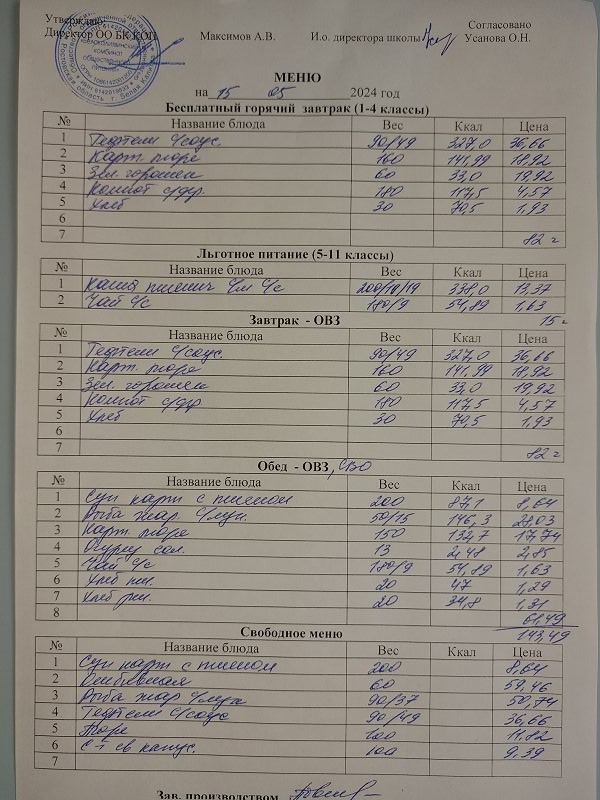 Утверждаю:
Директор ОО БК КОП Максимов А.В. И.о. директора школы Согласовано Усанова О.Н.
МЕНЮ
на 15 05 2024 год
Бесплатный горячий завтрак (1-4 классы)
№ Название блюда Вес Ккал Цена
1 Тефтели с/соус. 90/49 327,0 36,66
2 Карт. пюре 160 141,99 18,92
3 Зел. горошек 60 33,0 19,92
4 Компот с/фр 180 117,5 4,57
5 Хлеб 30 70,5 1,93
6
7 82 =
Льготное питание (5-11 классы)
№ Название блюда Вес Ккал Цена
1 Каша пшенич с/м с/с 200/10/19 338,0 13,37
2 Чай с/с 180/9 54,89 1,63
15 =
Завтрак - ОВЗ
№ Название блюда Вес Ккал Цена
1 Тефтели с/соус. 90/49 327,0 36,66
2 Карт. пюре 160 141,99 18,92
3 Зел. горошек 60 33,0 19,92
4 Компот с/фр 180 117,5 4,57
5 Хлеб 30 70,5 1,93
6
7 82 =
Обед - ОВЗ, СВО
№ Название блюда Вес Ккал Цена
1 Суп карт с пшеном 200 87,1 8,64
2 Рыба жар. с/лук. 50/15 146,3 28,03
3 Карт. пюре 150 132,7 17,74
4 Огурец сол. 13 2,48 2,85
5 Чай с/с 180/9 54,89 1,63
6 Хлеб пш. 20 47 1,29
7 Хлеб рж. 20 34,8 1,31
8 61,49
143,49
Свободное меню
№ Название блюда Вес Ккал Цена
1 Суп карт с пшеном 200 8,64
2 Отбивная 60 59,46
3 Рыба жар с/лук 90/37 50,74
4 Тефтели с/соус 90/49 36,66
5 Пюре 100 11,82
6 С-т св капус. 100 9,39
7
Зав. производством